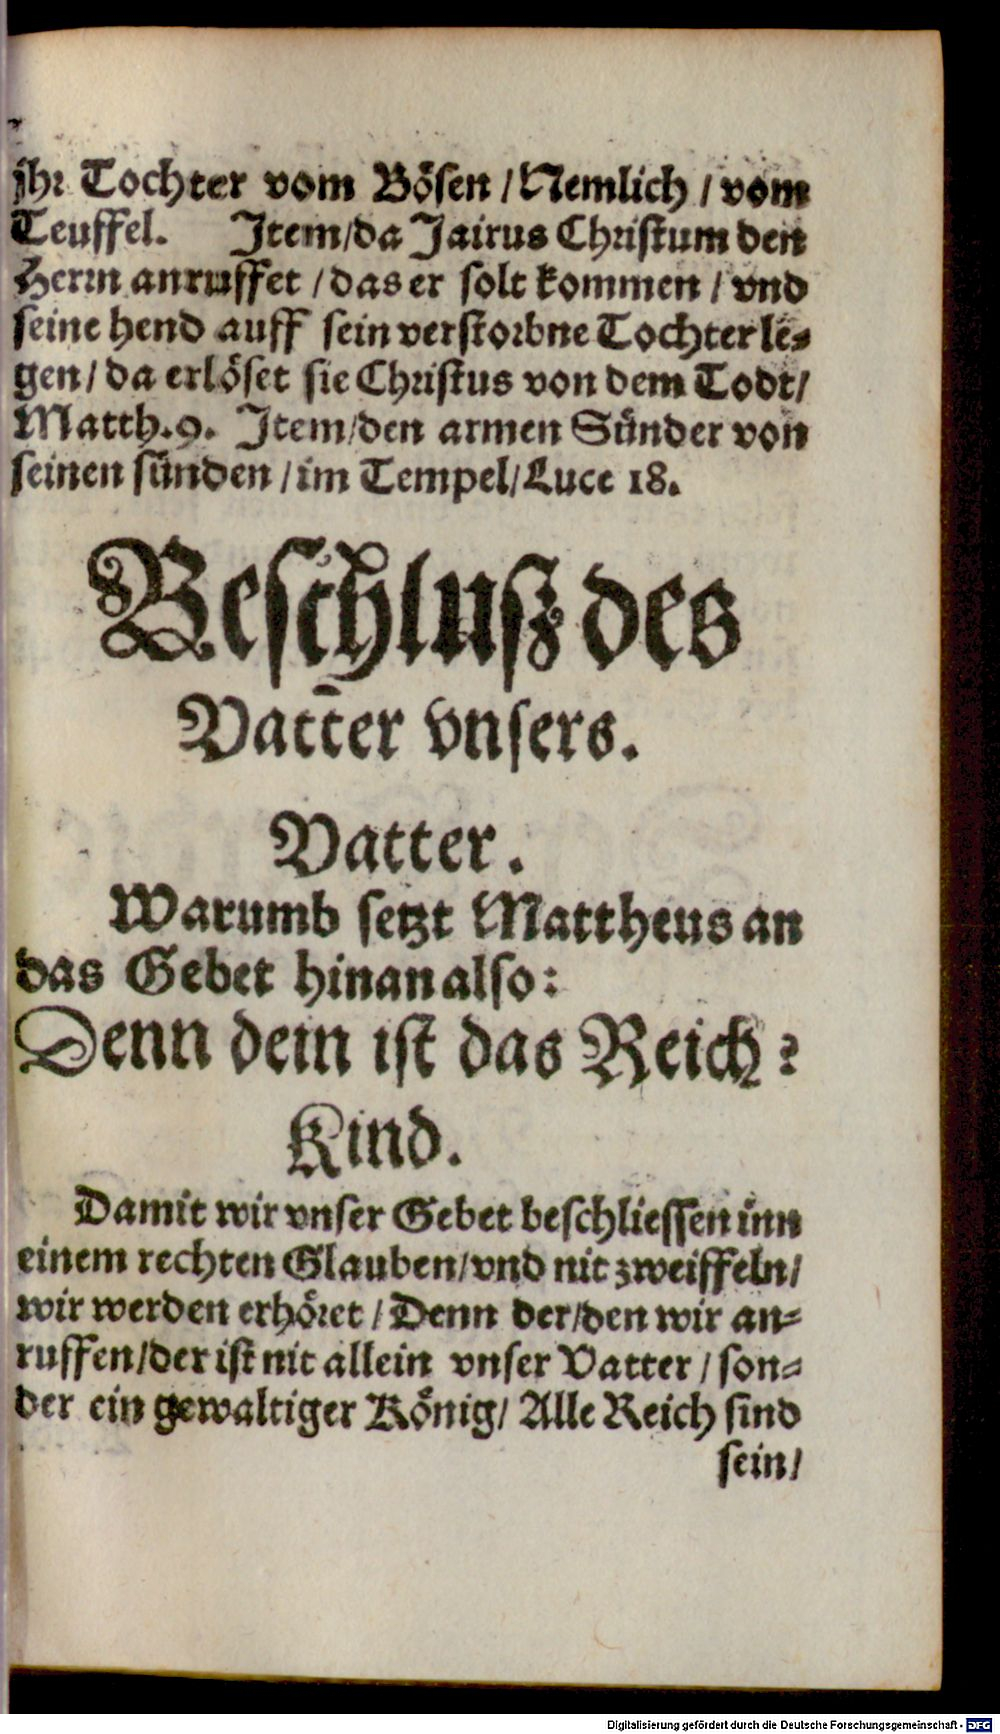 jhr Tochter vom Bösen / Nemlich / vom
Teuffel. Item/da Jairus Christum den
Herrn anruffet / das er solt kommen / vnd
seine hend auff sein verstorbne Tochter le-
gen / da erlöset sie Christus von dem Todt /
Matth. 9. Item/den armen Sünder von
seinen sünden / im Tempel/Luce 18.
Beschluß des
Vatter vnsers.
Vatter.
Warumb setzt Mattheus an
das Gebet hinan also:
Denn dein ist das Reich?
Kind.
Damit wir vnser Gebet beschliessen inn
einem rechten Glauben/vnd nit zweiffeln/
wir werden erhöret / Denn der/den wir an-
ruffen/der ist nit allein vnser Vatter / son-
der ein gewaltiger König/ Alle Reich sind
sein/
Digitalisierung gefördert durch die Deutsche Forschungsgemeinschaft - DFG